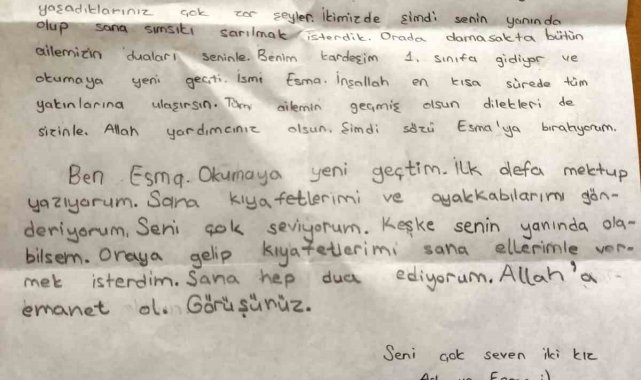 yaşadıklarınız çok zor şeyler. İkimizde şimdi senin yanında
olup sana sımsıkı sarılmak isterdik. Orada olamasakta bütün
ailemizin duaları seninle. Benim kardeşim 1. sınıfa gidiyor ve
okumaya yeni geçti. İsmi Esma. İnşallah en kısa sürede tüm
yakınlarına ulaşırsın. Tüm ailemin geçmiş olsun dilekleri de
sizinle. Allah yardımcınız olsun. Şimdi sözü Esma'ya bırakıyorum.
Ben Esma. Okumaya yeni geçtim. İlk defa mektup
yazıyorum. Sana kıyafetlerimi ve ayakkabılarımı gön-
deriyorum. Seni çok seviyorum. Keşke senin yanında ola-
bilsem. Oraya gelip kıyafetlerimi sana ellerimle ver-
mek isterdim. Sana hep dua ediyorum. Allah'a
emanet ol. Görüşünüz.
Seni çok seven iki kız